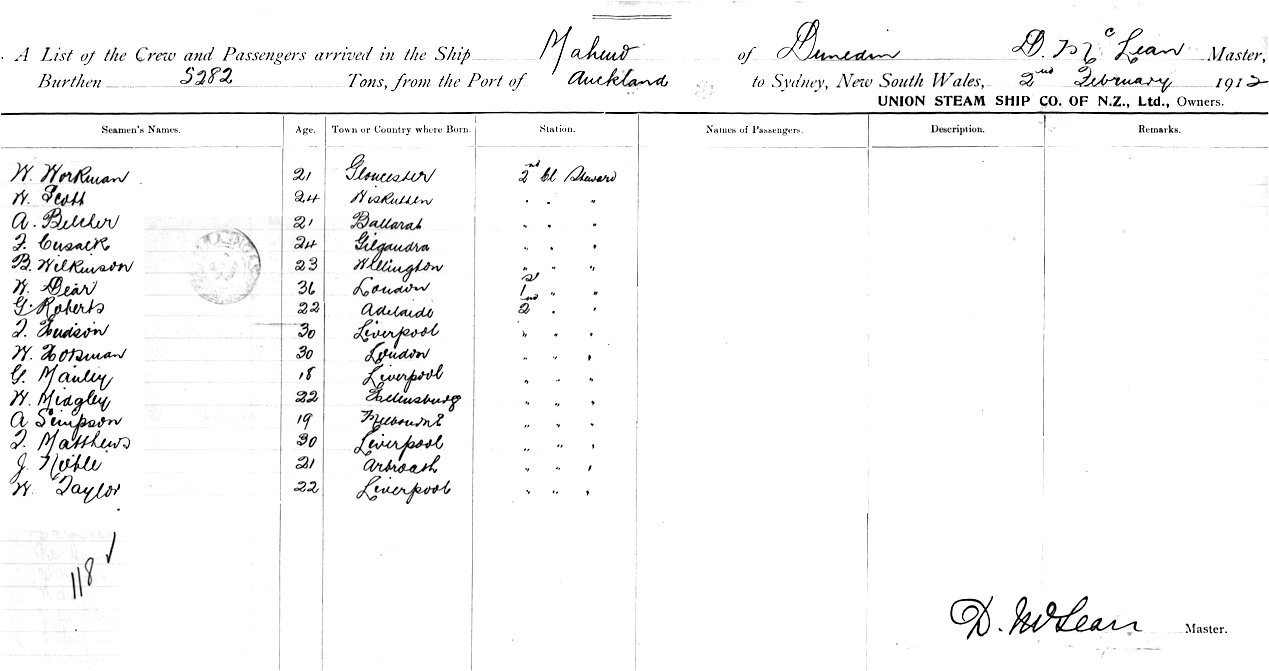 A List of the Crew and Passengers arrived in the Ship Maheno of Dunedin D. McLean Master,
Burthen 5282 Tons, from the Port of Auckland to Sydney, New South Wales, 2nd February 1912
UNION STEAM SHIP CO. OF N.Z., Ltd., Owners.
Seamen's Names. Age. Town or Country where Born. Station. Names of Passengers. Description. Remarks.
W. Workman 21 Gloucester 2nd Cl Steward
W. Scott 24 " " "
A. Belcher 21 Ballarat " " "
F. Cusack 24 Gilgandra " " "
B. Wilkinson 23 Wellington " " "
W. Dear 36 London 1st " "
G. Roberts 22 Adelaide 2nd " "
T. Hudson 30 Liverpool " " "
W. 30 London " " "
G. Manley 18 Liverpool " " "
W. Midgley 22 Helensburg " " "
A Simpson 19 Melbourne " " "
T. Matthews 30 Liverpool " " "
J. Noble 21 Arbroath " " "
W. Taylor 22 Liverpool " " "
118 ✓
D. McLean Master.